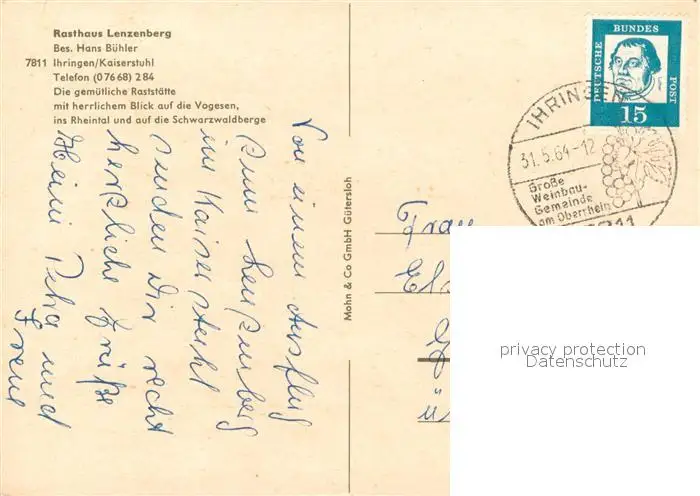 Rasthaus Lenzenberg
Bes. Hans Bühler
7811 Ihringen/Kaiserstuhl
Telefon (07668) 284
Die gemütliche Raststätte
mit herrlichem Blick auf die Vogesen,
ins Rheintal und auf die Schwarzwaldberge
Von einem Ausflug
zum Lenzenberg
im Kaiserstuhl
senden Dir recht
herzliche Grüße
Heini Petra und
Irene
Mohn & Co GmbH Gütersloh
DEUTSCHE BUNDES POST
15
IHRINGEN
31.5.64-12
Große
Weinbau-
Gemeinde
am Oberrhein
7811
Frau
privacy protection
Datenschutz